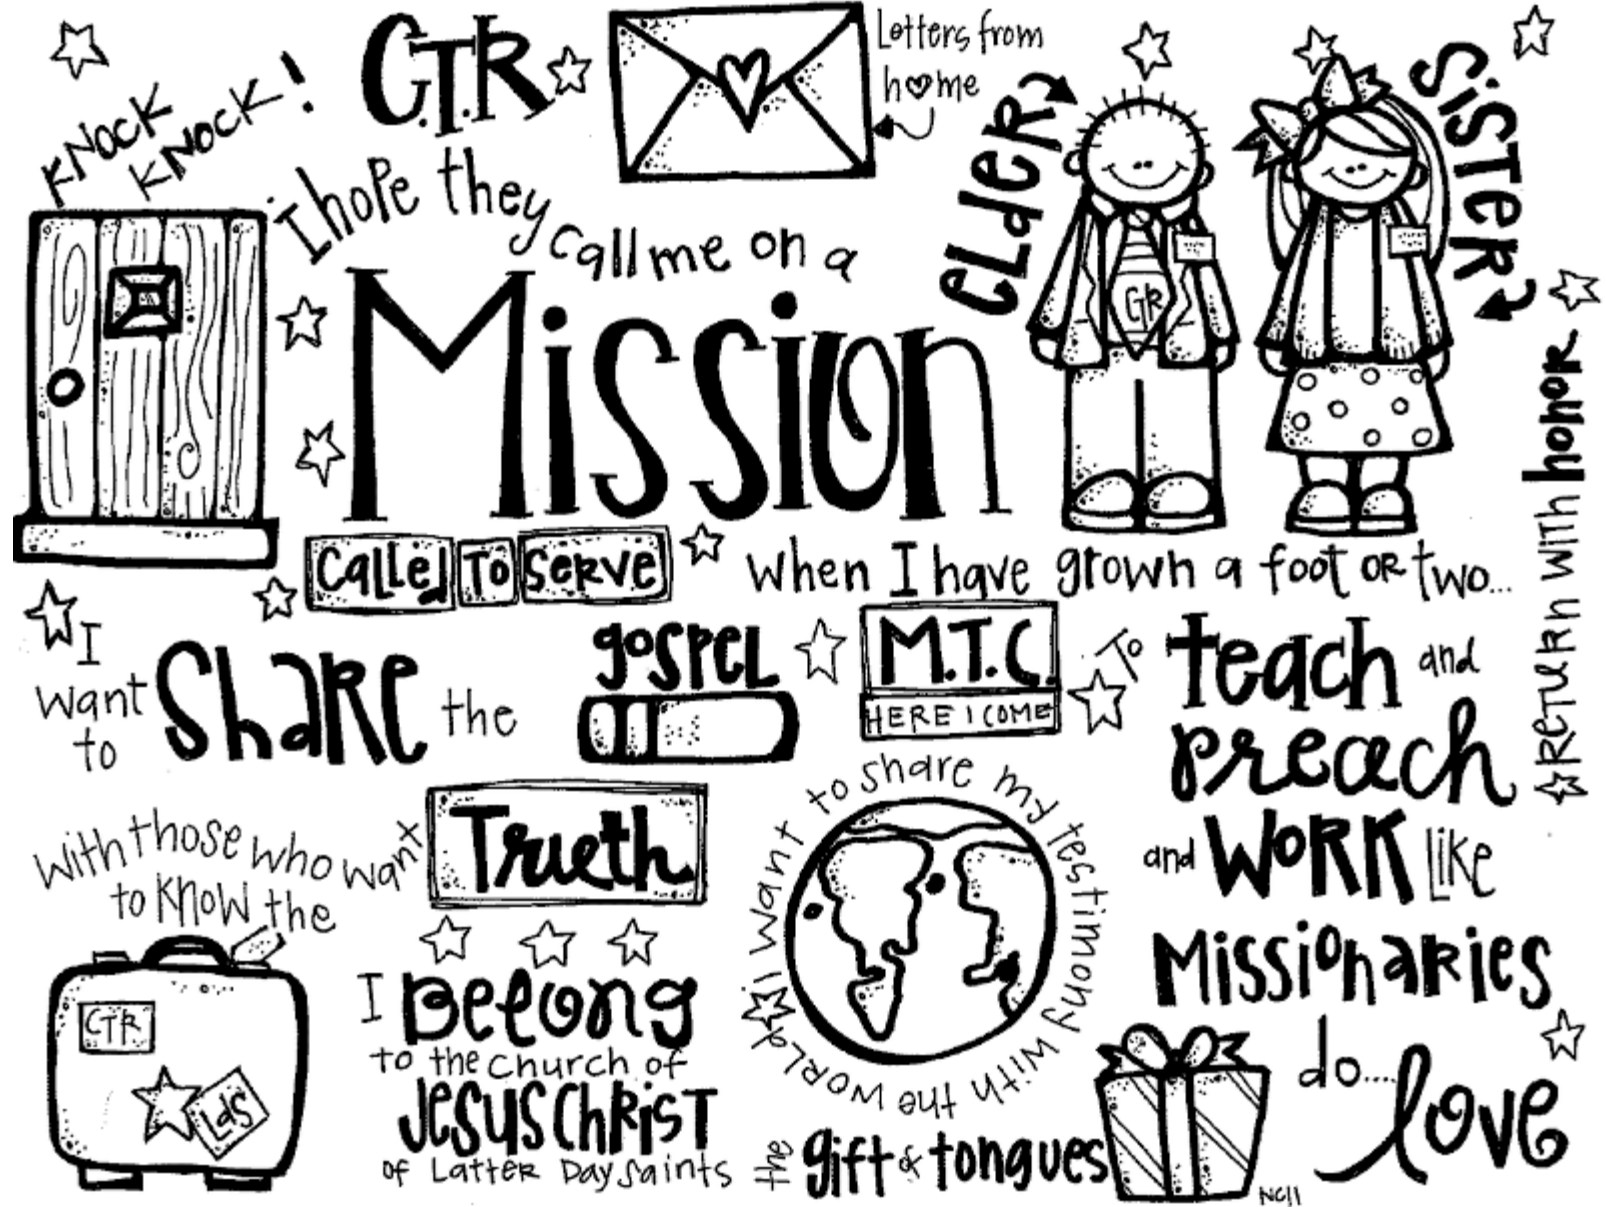 KNOCK
KNOCK!
C.T.R
Letters from
home
ELdER
SiSTER
I hope they call me on a
Mission
CTR
Called To Serve
when I have grown a foot or two...
Return with honor
I
want
to
Share the
gospel
M.T.C.
HERE I COME
To
teach and
preach
and WORK like
Missionaries
do....
with those who want
to know the
Truth
I want to share my testimony with the world
CTR
LdS
I Belong
to the church of
Jesus Christ
of Latter Day Saints
the gift of tongues
love
NC11